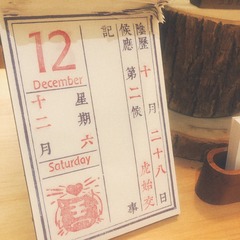 12
December
十二月
星期六
Saturday
王
記事
候應
第二候
虎始交
陰歷
十月二十八日